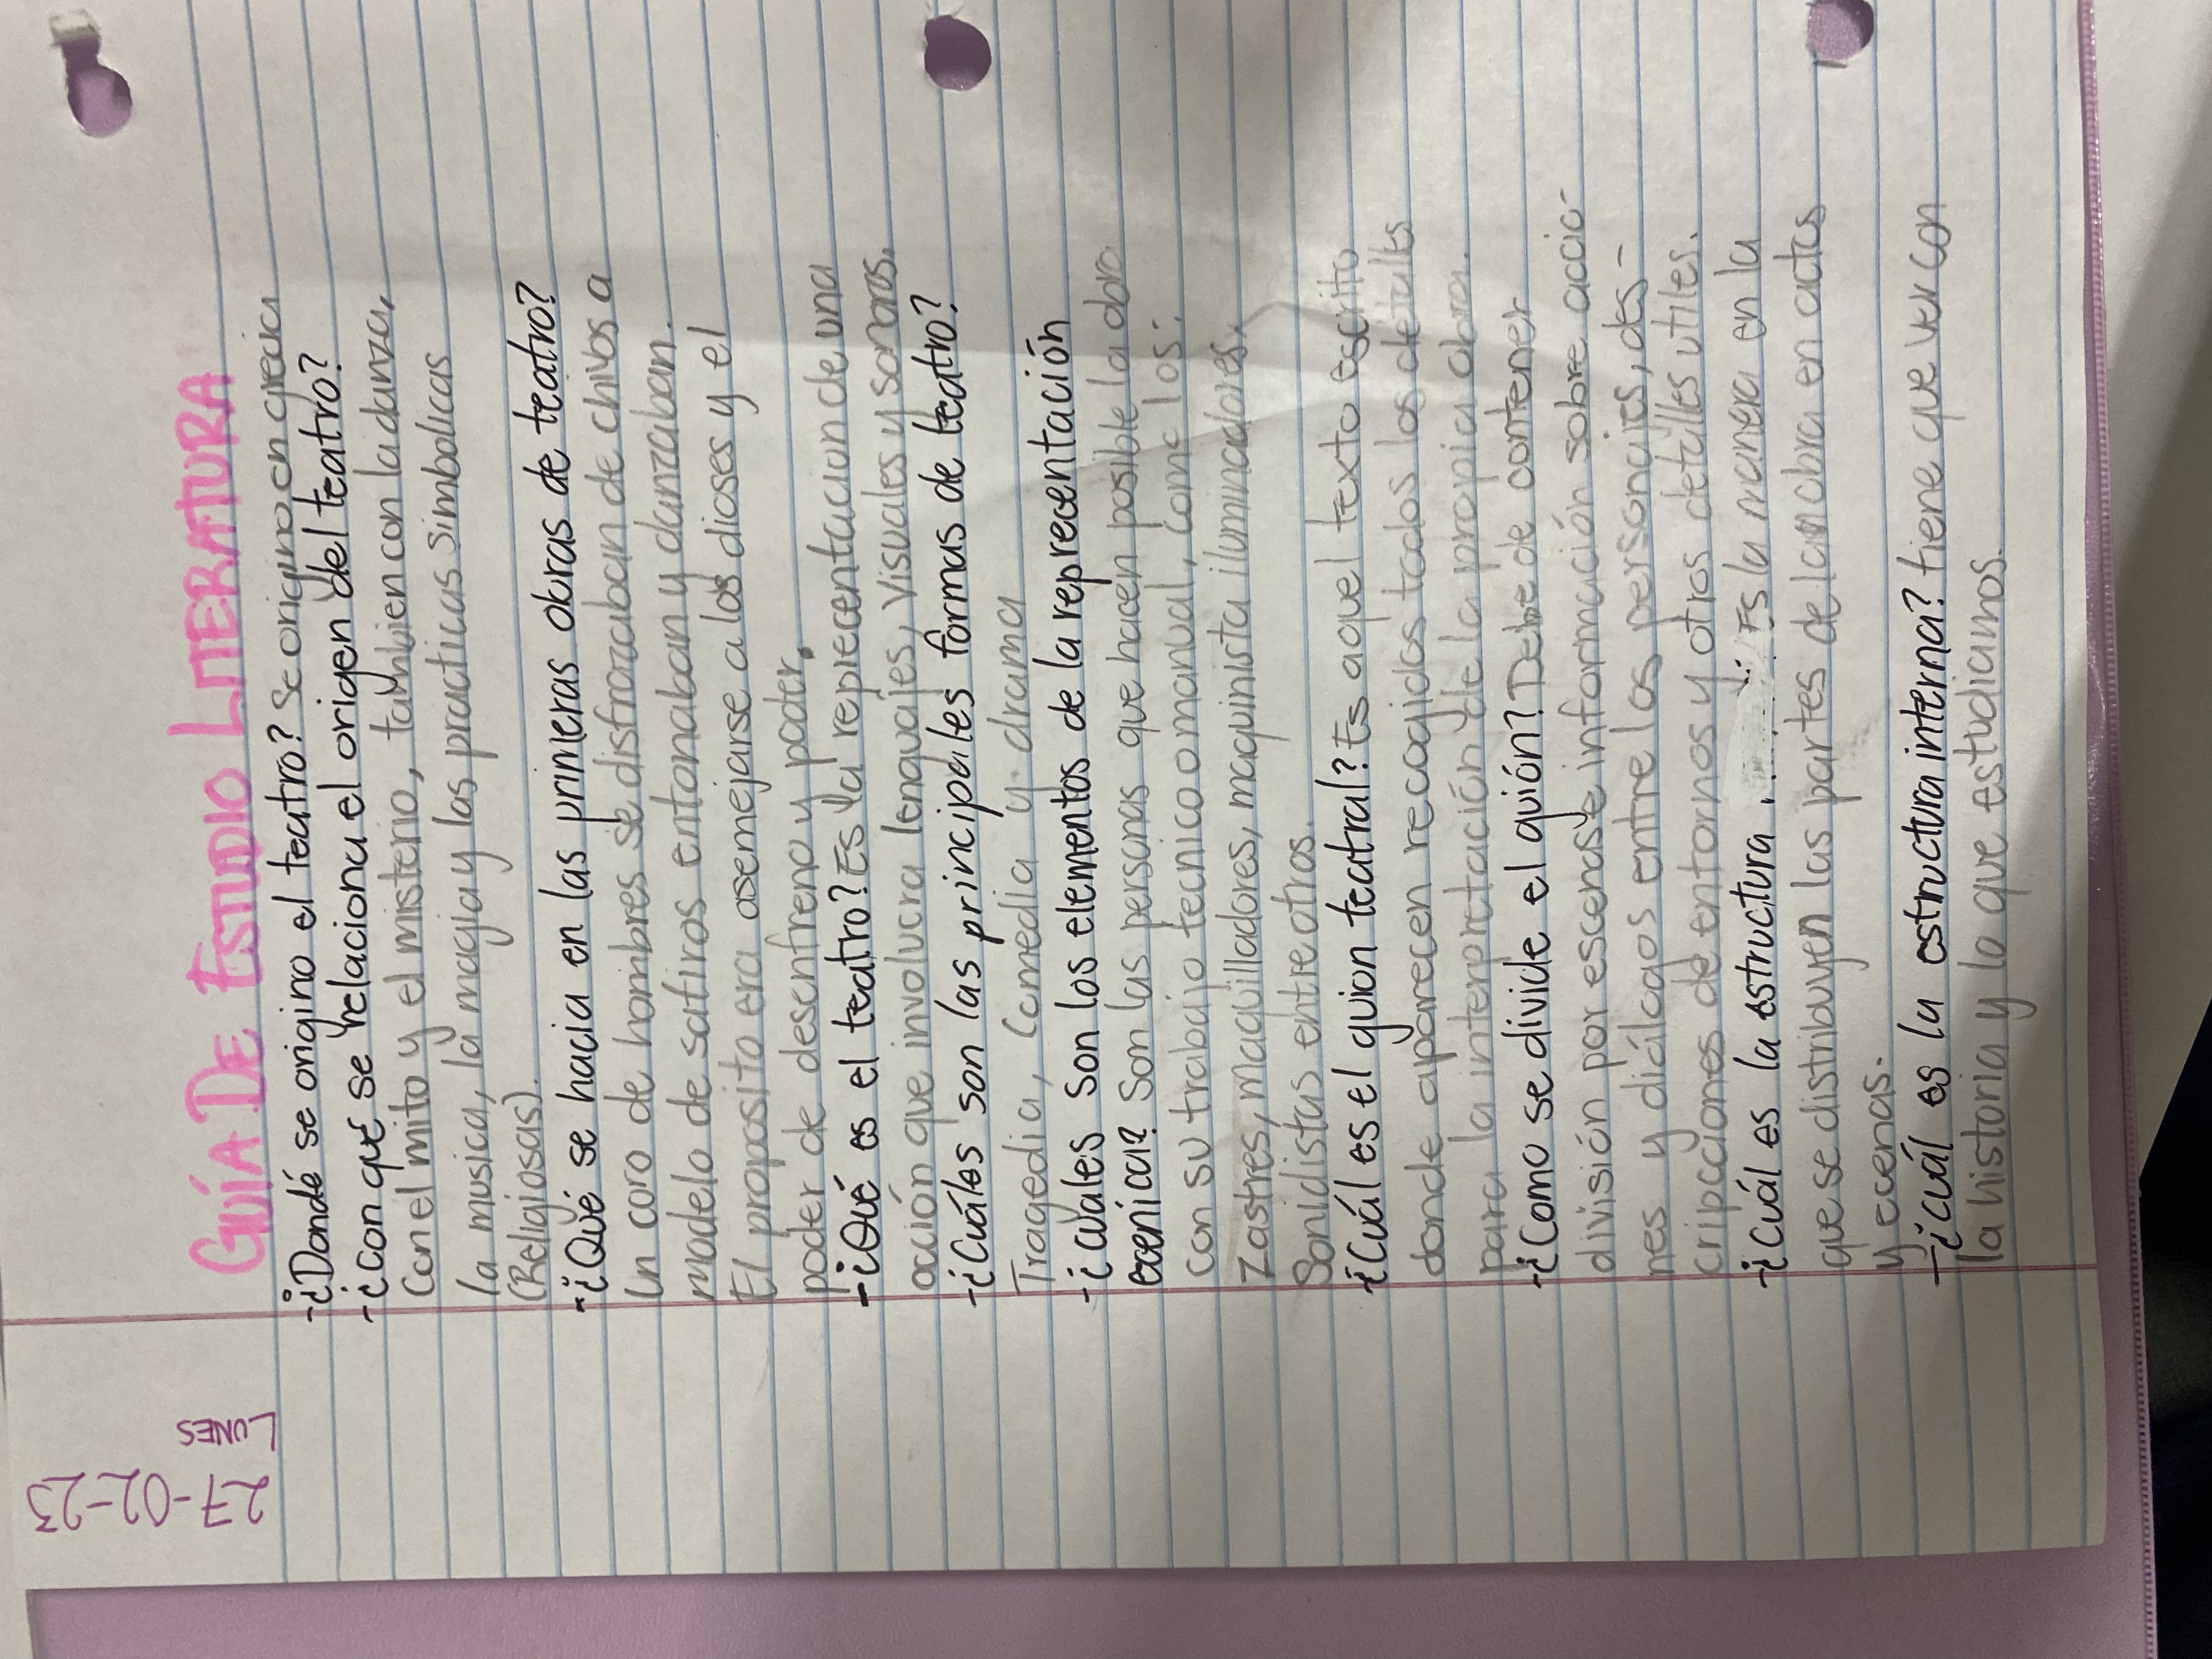 27-02-23
LUNES
GUÍA DE ESTUDIO LITERATURA
-¿Dondé se origino el teatro? Se origino en grecia
-¿con qué se relaciona el origen del teatro?
Con el mito y el misterio, tambien con la danza,
la musica, la magia y las practicas simbolicas
(Religiosas).
-¿Qué se hacia en las primeras obras de teatro?
Un coro de hombres se disfrazaban de chivos a
modelo de satiros entonaban y danzaban.
El proposito era asemejarse a los dioses y el
poder de desenfreno y poder.
-¿Qué es el teatro? Es la reprecentacion de una
acción que involucra lenguajes, visuales y sonoros.
-¿Cuáles son las principales formas de teatro?
Tragedia, comedia y drama
-¿cuales son los elementos de la reprecentación
ecenica? Son las personas que hacen posible la obra
con su trabajo tecnico o manual, como los:
Zastres, maquilladores, maquinista iluminadores,
Sonidistas entre otros.
-¿Cuál es el guion teatral? Es aquel texto escrito
donde aparecen recogidos todos los detalles
para la interpretación de la propia obra.
-¿Como se divide el guión? Debe de contener
división por escenas e información sobre accio-
nes y diálogos entre los personajes, des-
cripcciones de entornos y otros detalles utiles.
-¿Cuál es la estructura Es la manera en la
que se distribuyen las partes de la obra en actos
y ecenas.
-¿cuál es la estructura interna? tiene que ver con
la historia y lo que estudiamos.